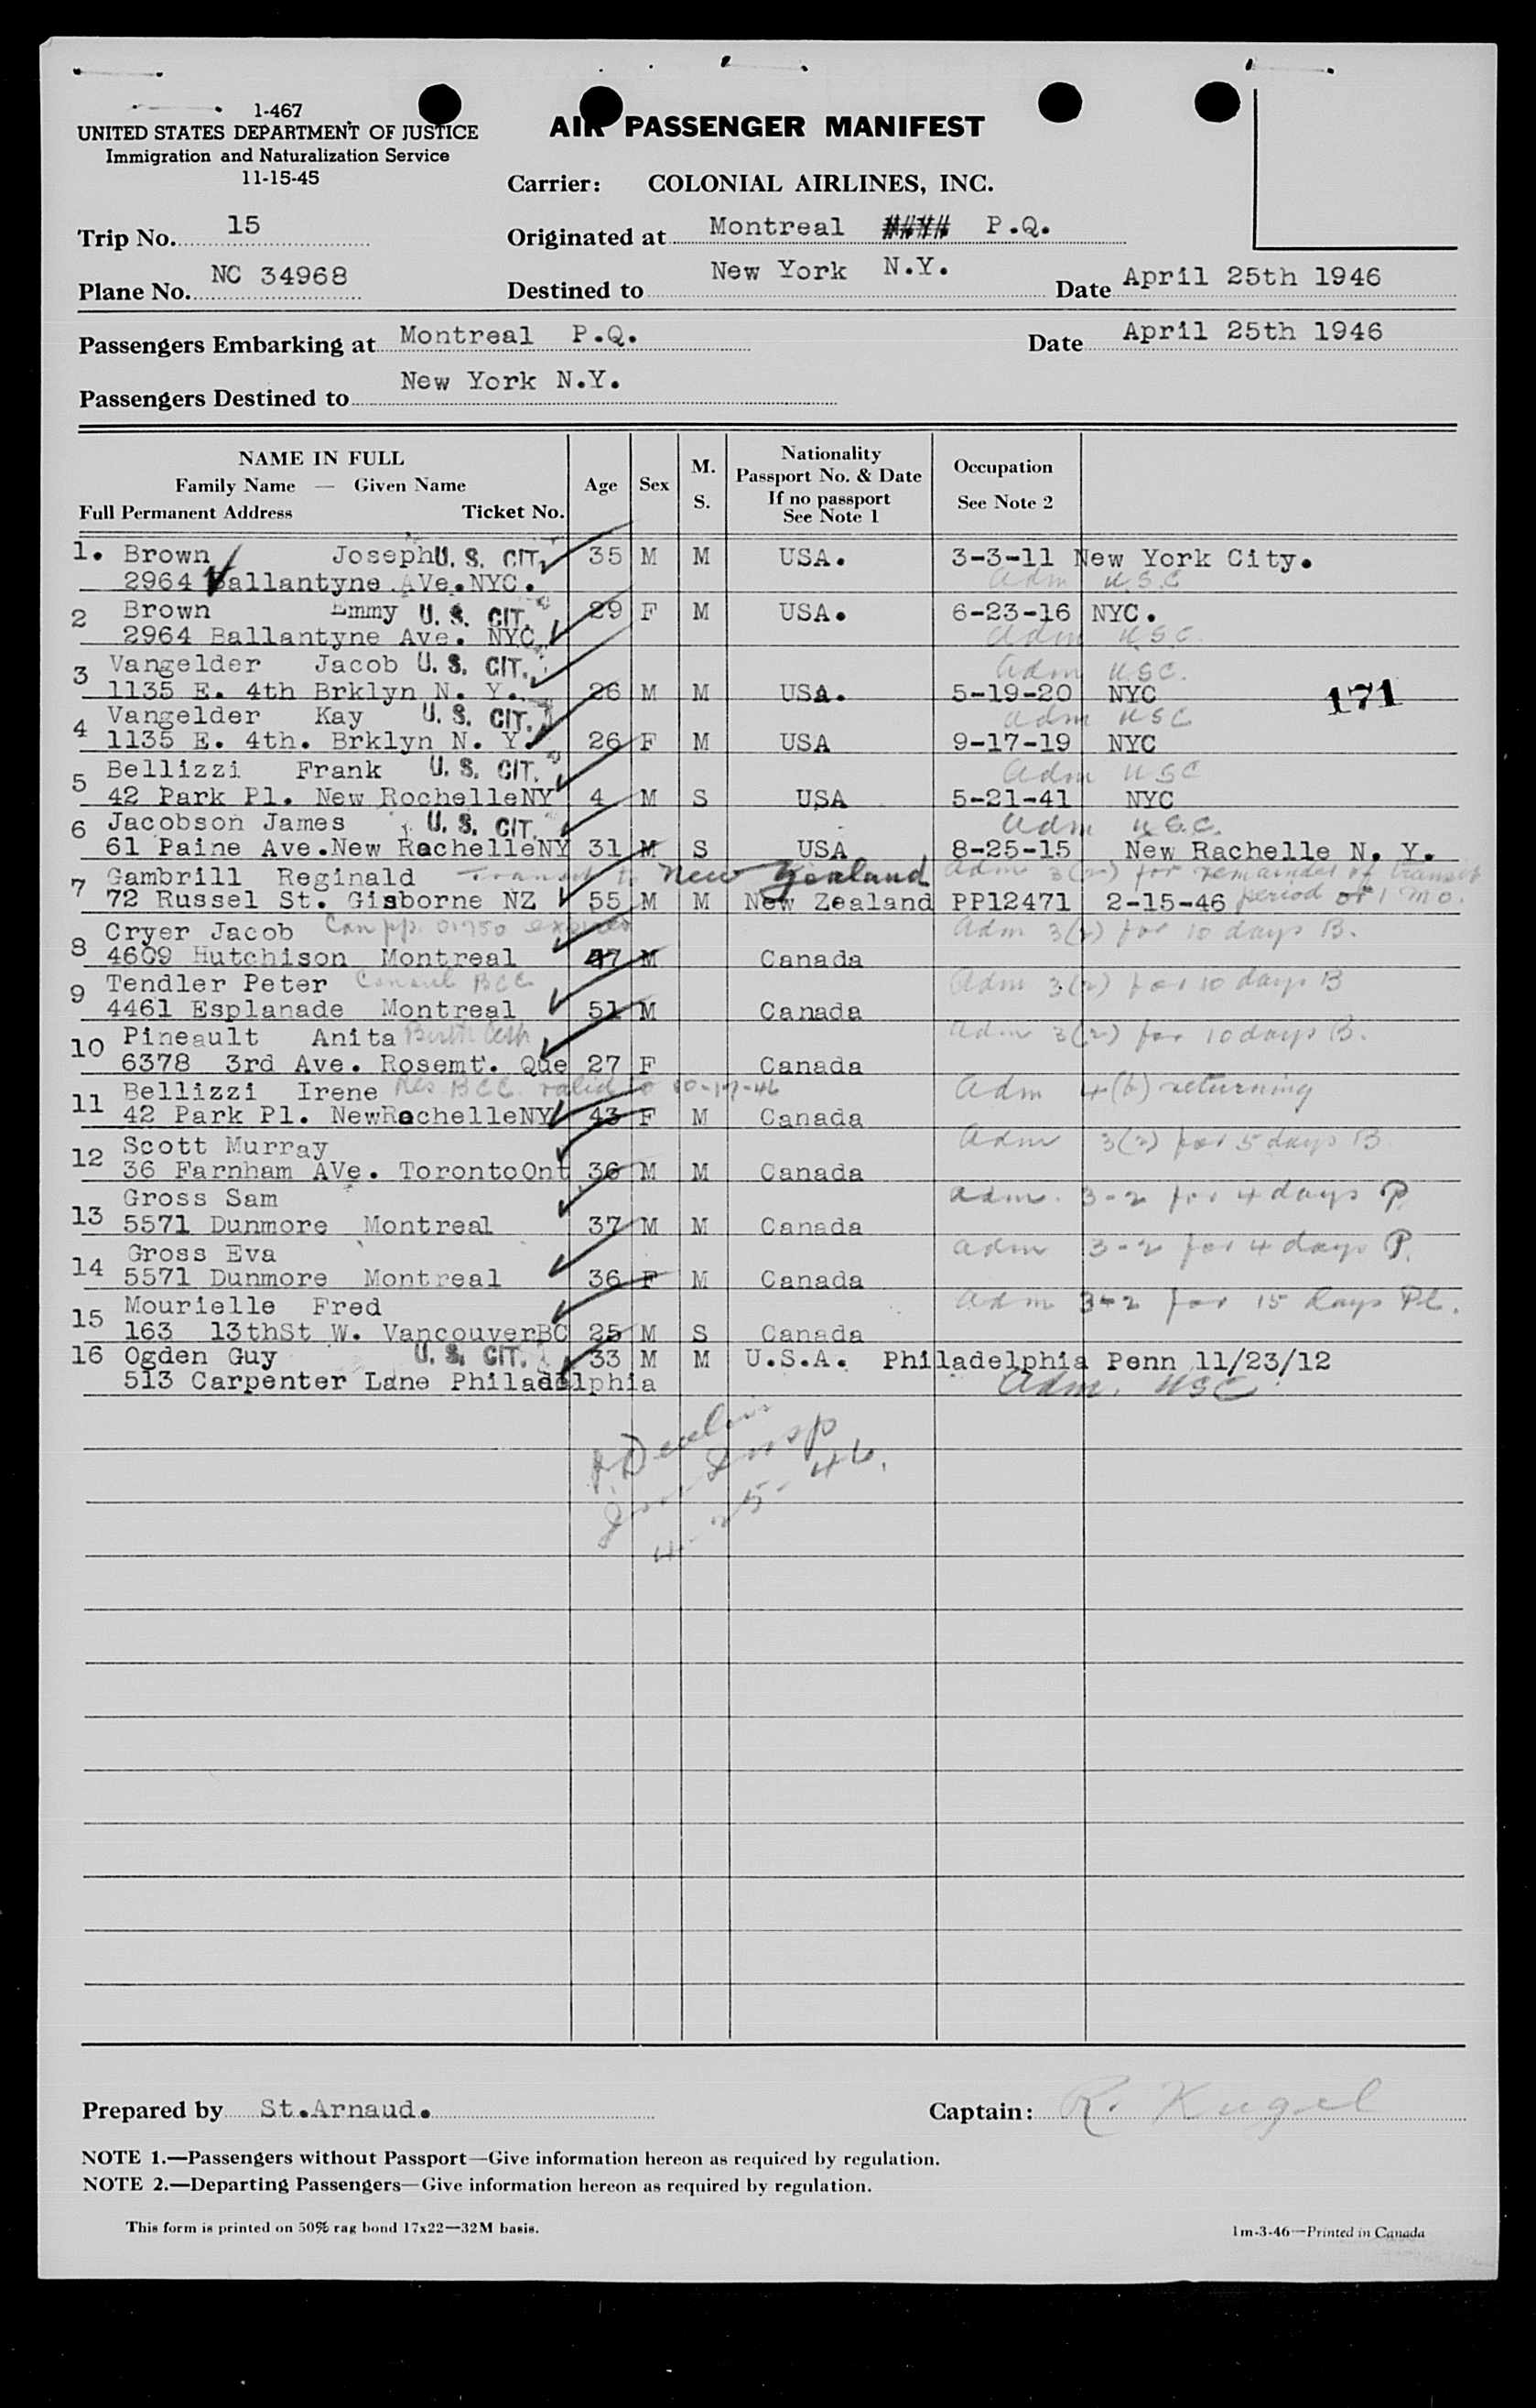 1-467
UNITED STATES DEPARTMENT OF JUSTICE
Immigration and Naturalization Service
11-15-45
AIR PASSENGER MANIFEST
Carrier: COLONIAL AIRLINES, INC.
Trip No. 15
Originated at Montreal #### P.Q.
Plane No. NC 34968
Destined to New York N.Y. Date April 25th 1946
Passengers Embarking at Montreal P.Q. Date April 25th 1946
Passengers Destined to New York N.Y.
NAME IN FULL
Family Name — Given Name
Full Permanent Address Ticket No.
Age
Sex
M.
S.
Nationality
Passport No. & Date
If no passport
See Note 1
Occupation
See Note 2
1. Brown Joseph U. S. CIT. 35 M M USA. 3-3-11 New York City.
2964 Ballantyne AVe. NYC. Adm U.S.C
2 Brown Emmy U. S. CIT. 29 F M USA. 6-23-16 NYC.
2964 Ballantyne Ave. NYC Adm USC.
3 Vangelder Jacob U. S. CIT. Adm U.S.C.
1135 E. 4th Brklyn N. Y. 26 M M USA. 5-19-20 NYC
171
4 Vangelder Kay U. S. CIT. Adm USC
1135 E. 4th. Brklyn N. Y. 26 F M USA 9-17-19 NYC
5 Bellizzi Frank U. S. CIT. Adm USC
42 Park Pl. New RochelleNY 4 M S USA 5-21-41 NYC
6 Jacobson James U. S. CIT. Adm U.S.C.
61 Paine Ave.New RachelleNY 31 M S USA 8-25-15 New Rachelle N. Y.
7 Gambrill Reginald Transit to New Zealand Adm 3(2) for remainder of transit
72 Russel St. Gisborne NZ 55 M M New Zealand PP12471 2-15-46 period or 1 mo.
8 Cryer Jacob Can pp. 01750 expired Adm 3(2) for 10 days B.
4609 Hutchison Montreal 47 M Canada
9 Tendler Peter BCC Adm 3(2) for 10 days B
4461 Esplanade Montreal 51 M Canada
10 Pineault Anita Birth Adm 3(2) for 10 days B.
6378 3rd Ave. Rosemt. Que 27 F Canada
11 Bellizzi Irene Res BCC. valid to 10-17-46 Adm 4(b) returning
42 Park Pl. NewRochelleNY 43 F M Canada
12 Scott Murray Adm 3(2) for 5 days B
36 Farnham AVe. TorontoOnt 36 M M Canada
13 Gross Sam adm. 3-2 for 4 days P
5571 Dunmore Montreal 37 M M Canada
14 Gross Eva adm 3-2 for 4 days P.
5571 Dunmore Montreal 36 F M Canada
15 Mourielle Fred adm 3-2 for 15 days Pl.
163 13thSt W. VancouverBC 25 M S Canada
16 Ogden Guy U. S. CIT. 33 M M U.S.A. Philadelphia Penn 11/23/12
513 Carpenter Lane Philadelphia Adm. USC
Insp
4-25-46.
Prepared by St.Arnaud. Captain: R. Kugel
NOTE 1.—Passengers without Passport—Give information hereon as required by regulation.
NOTE 2.—Departing Passengers—Give information hereon as required by regulation.
This form is printed on 50% rag bond 17x22—32M basis. 1m-3-46—Printed in Canada